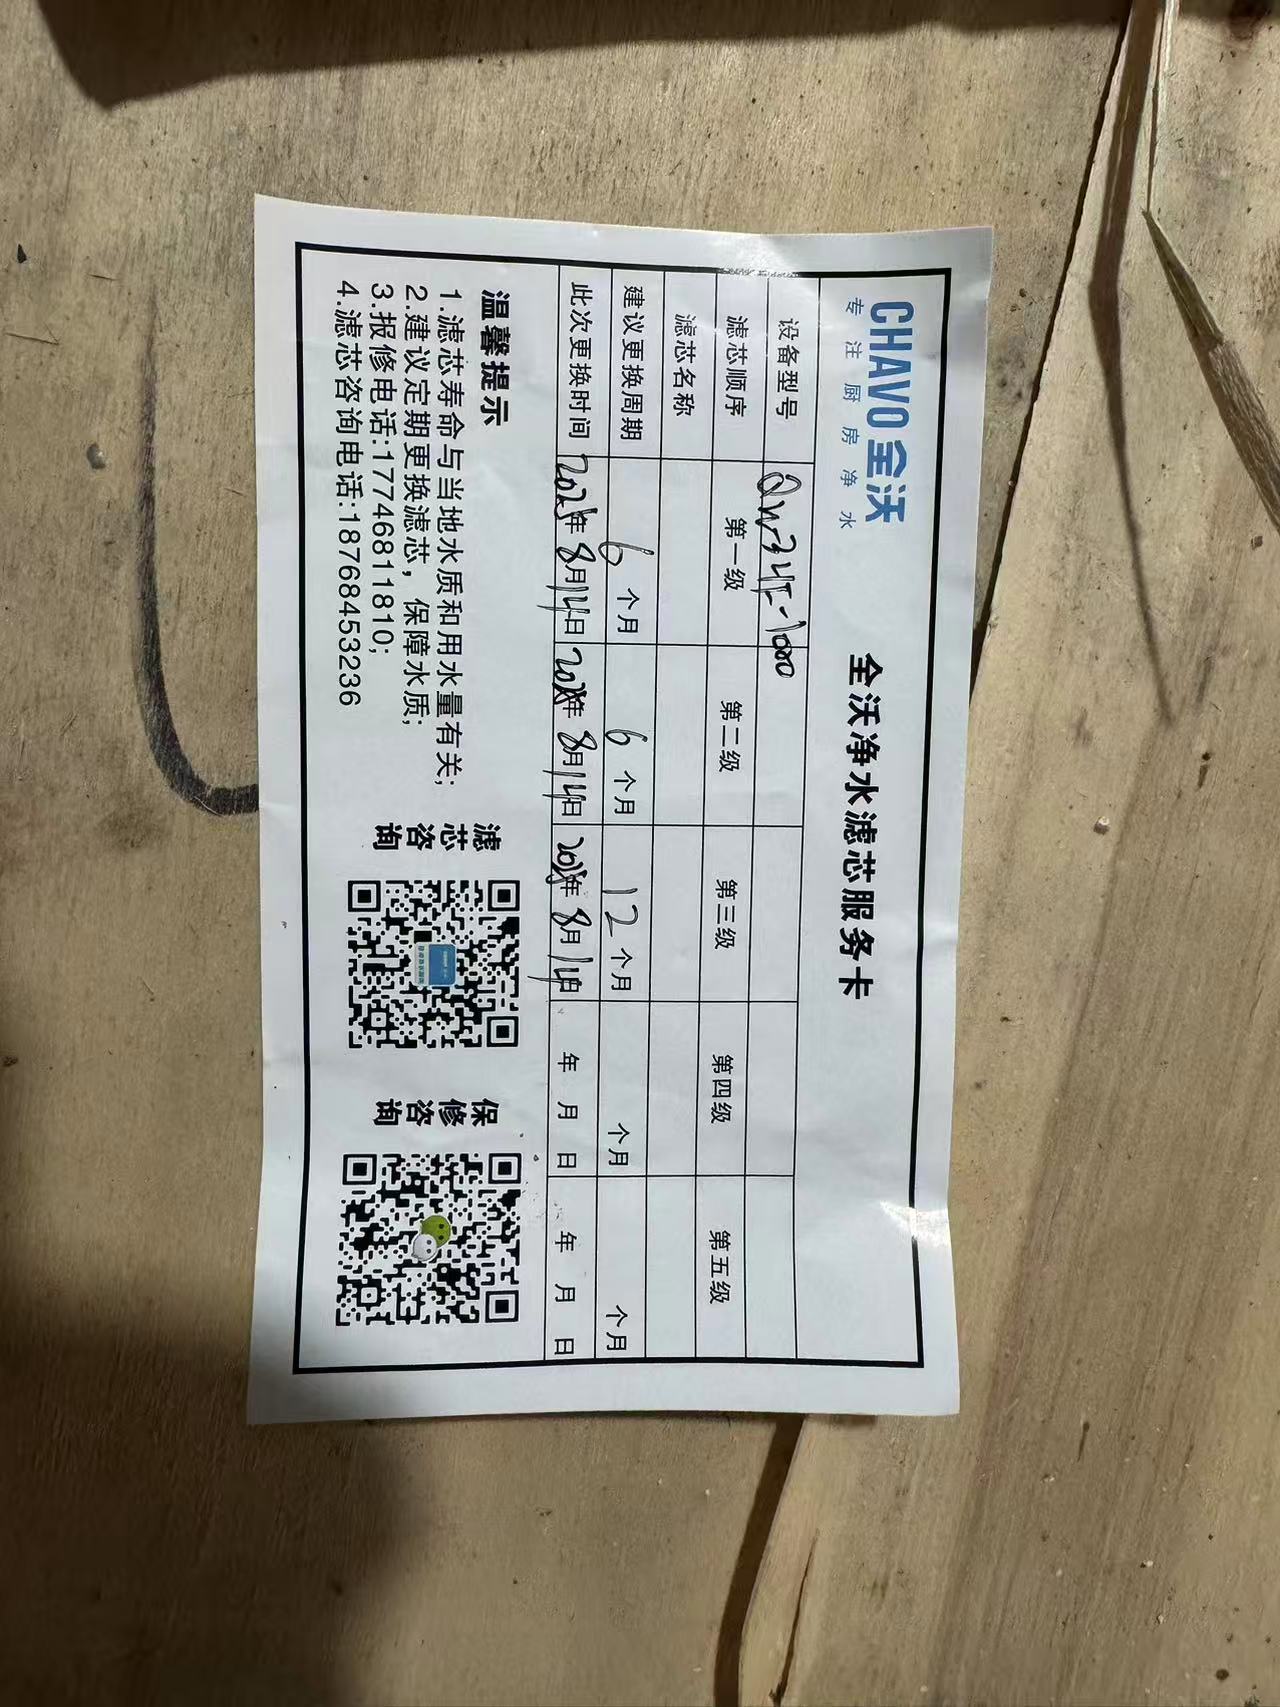 CHAVO 全沃
专注厨房净水
全沃净水滤芯服务卡
设备型号 QW-34F-1000
滤芯顺序 第一级 第二级 第三级 第四级 第五级
滤芯名称
建议更换周期 6个月 6个月 12个月 个月 个月
此次更换时间 2025年8月14日 2025年8月14日 2025年8月14日 年 月 日 年 月 日
温馨提示
1.滤芯寿命与当地水质和用水量有关;
2.建议定期更换滤芯，保障水质;
3.报修电话:17746811810;
4.滤芯咨询电话:18768453236
滤芯咨询
保修咨询